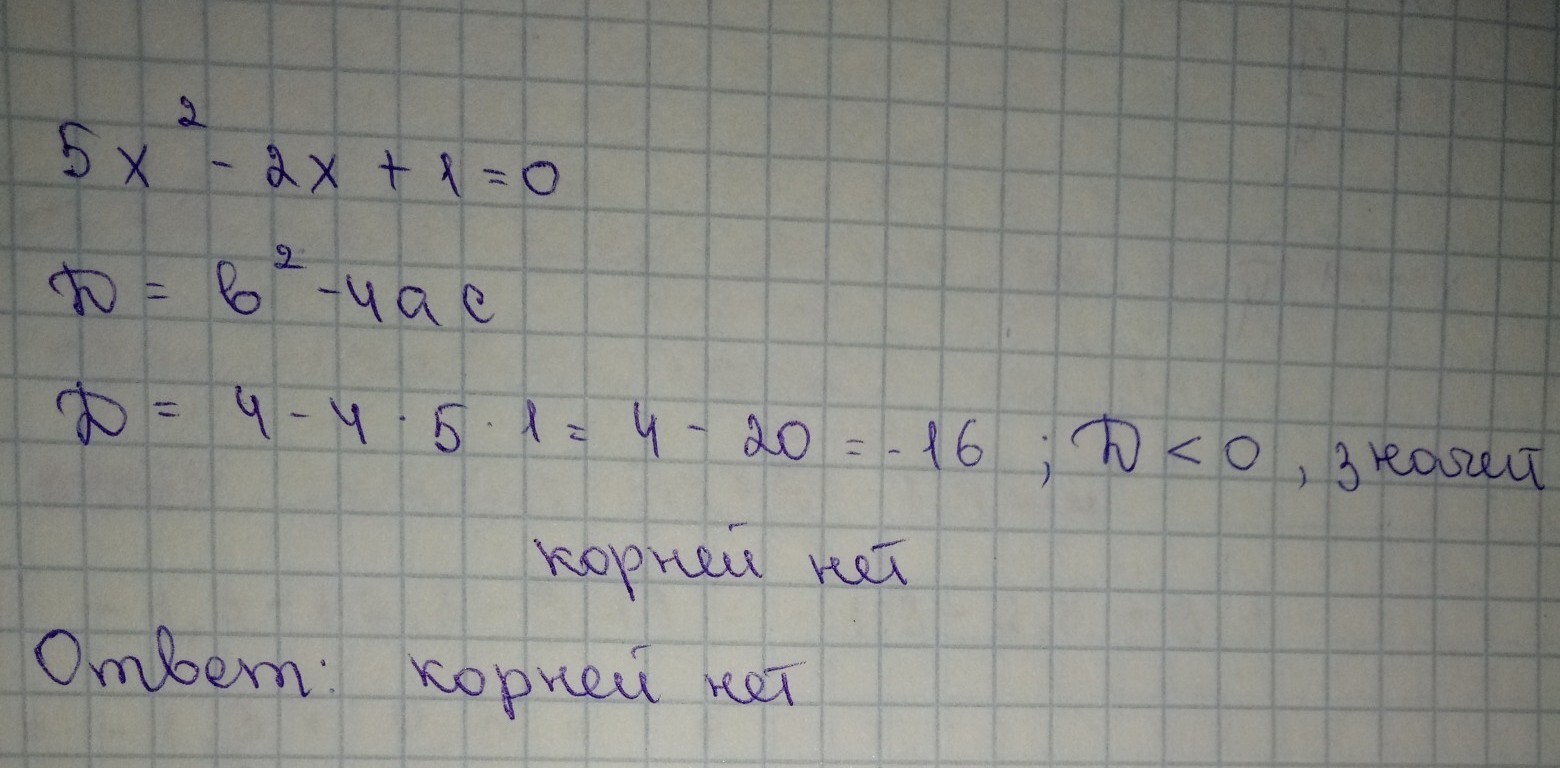 5x² - 2x + 1 = 0
D = в² - 4ac
D = 4 - 4 · 5 · 1 = 4 - 20 = -16 ; D < 0 , значит
корней нет
Ответ: корней нет